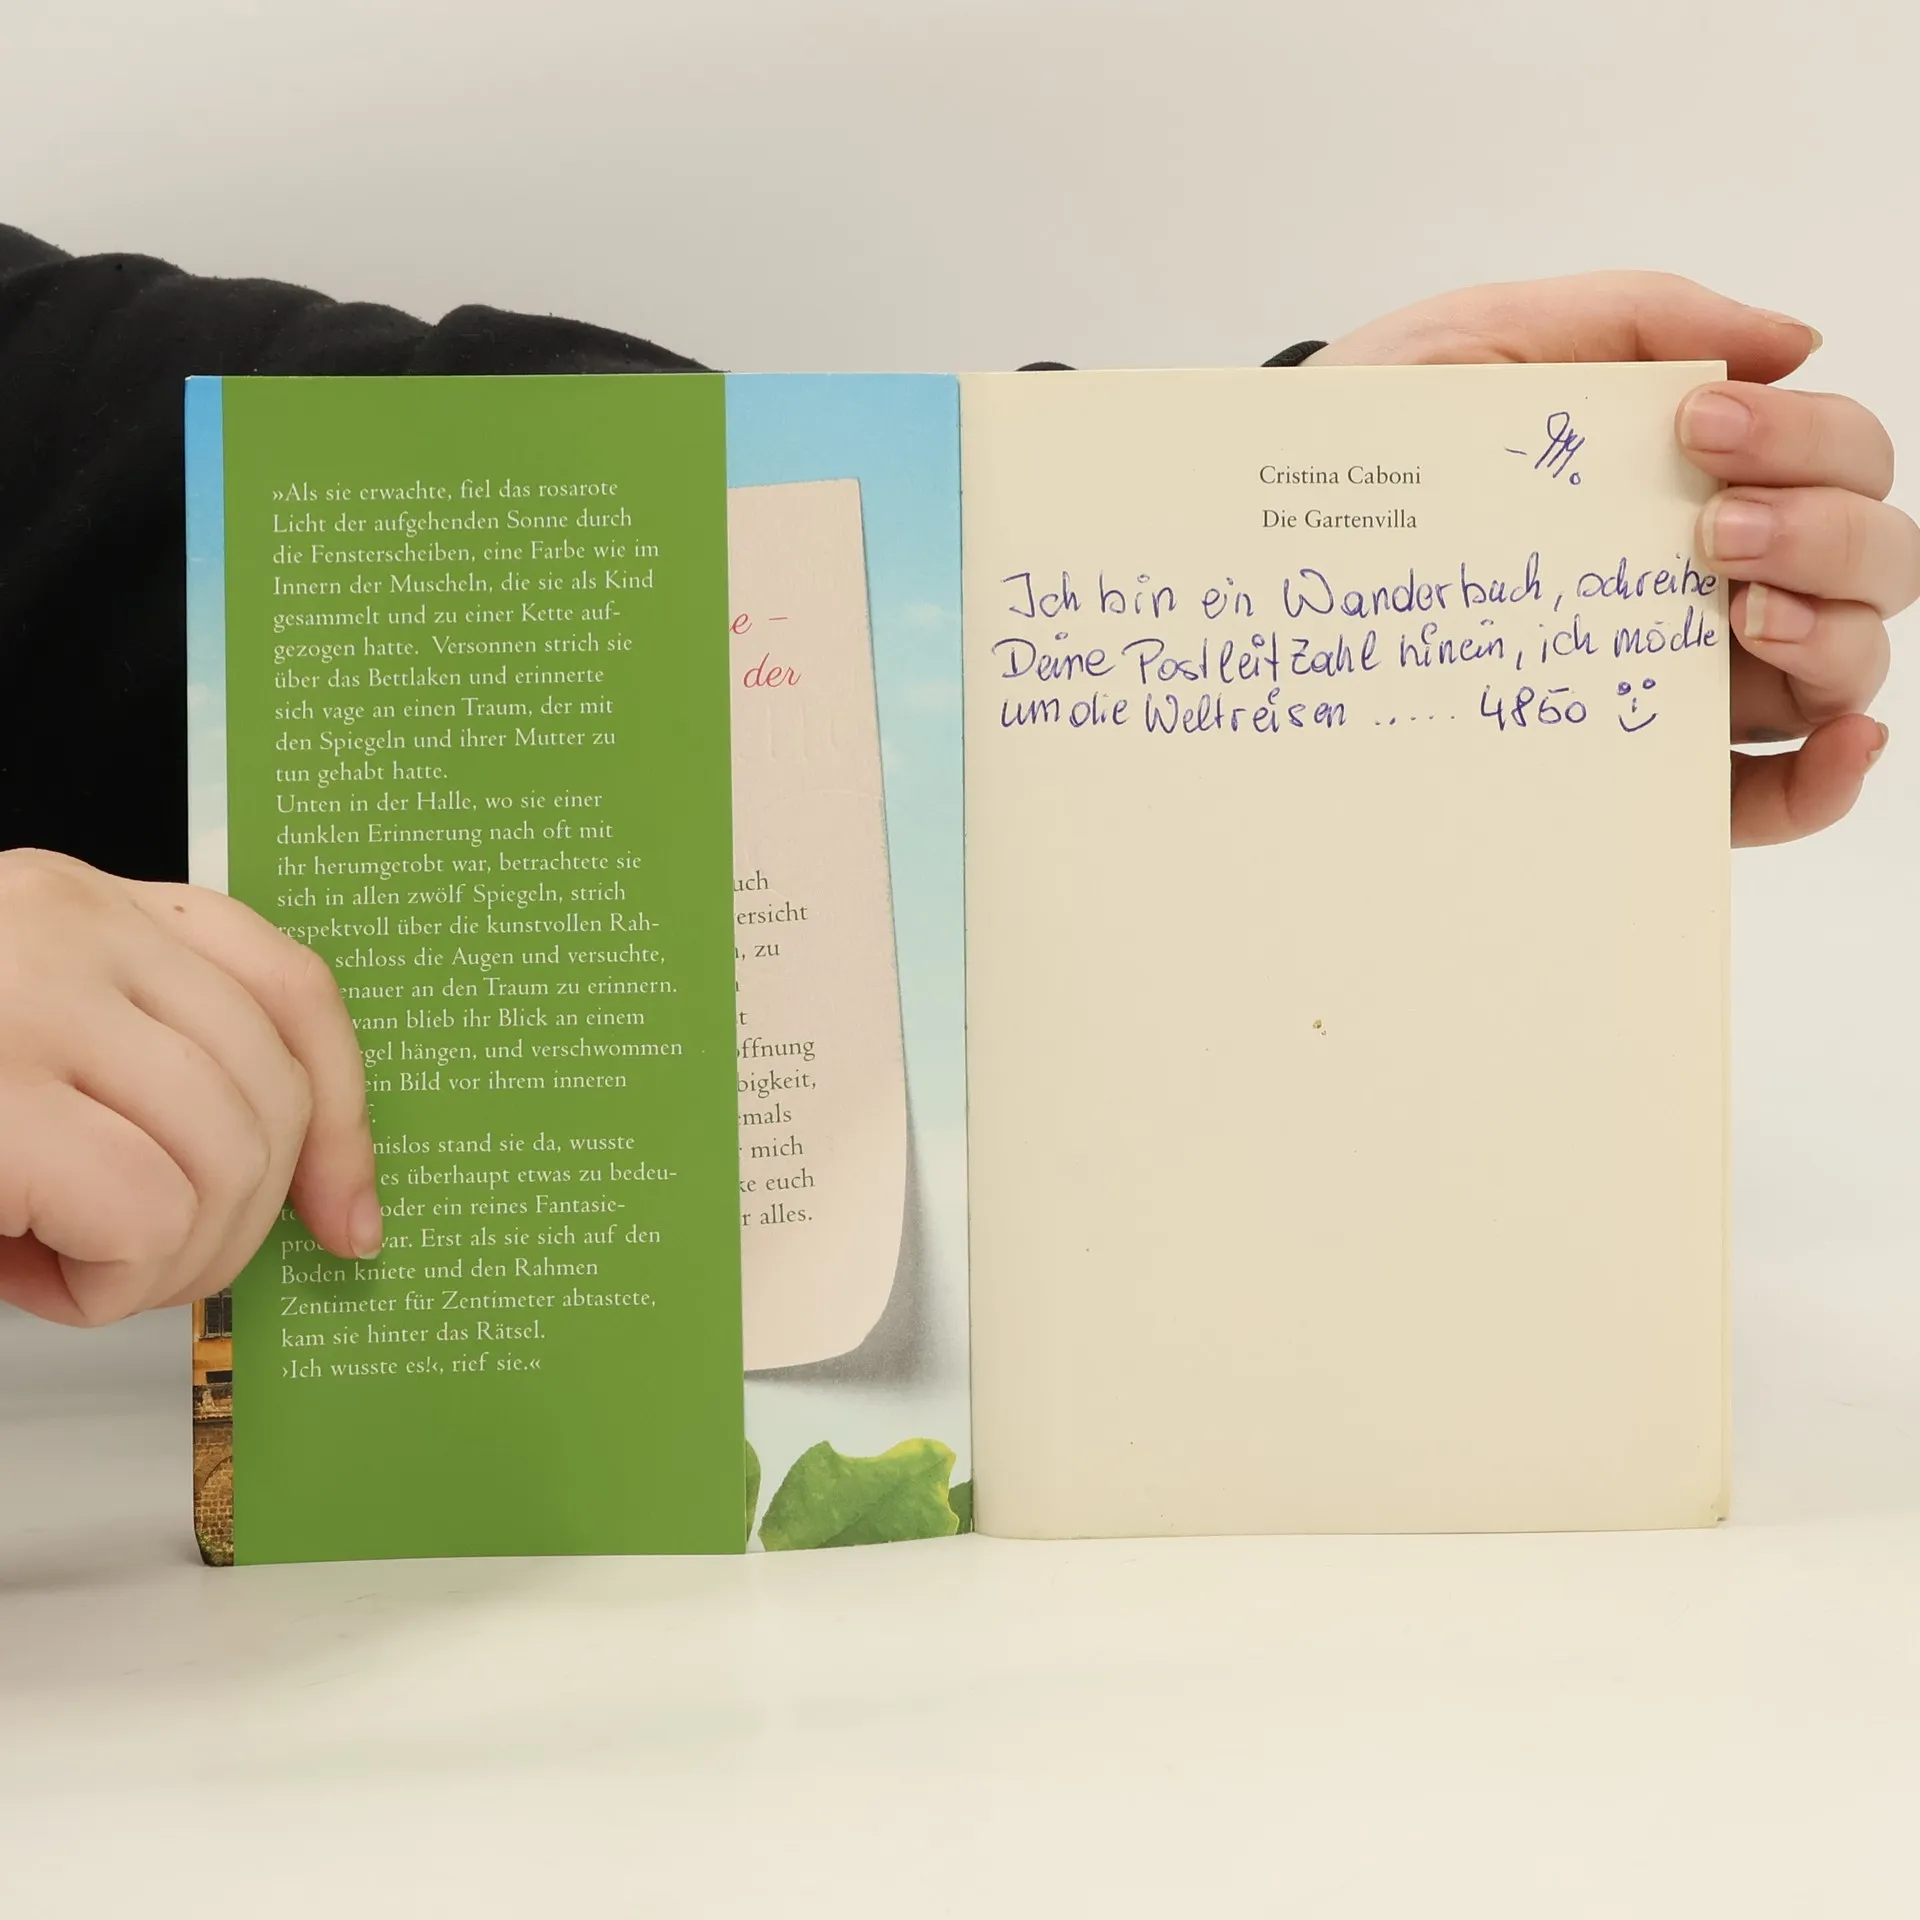 »Als sie erwachte, fiel das rosarote
Licht der aufgehenden Sonne durch
die Fensterscheiben, eine Farbe wie im
Innern der Muscheln, die sie als Kind
gesammelt und zu einer Kette auf-
gezogen hatte. Versonnen strich sie
über das Bettlaken und erinnerte
sich vage an einen Traum, der mit
den Spiegeln und ihrer Mutter zu
tun gehabt hatte.
Unten in der Halle, wo sie einer
dunklen Erinnerung nach oft mit
ihr herumgetobt war, betrachtete sie
sich in allen zwölf Spiegeln, strich
respektvoll über die kunstvollen Rah-
schloss die Augen und versuchte,
enauer an den Traum zu erinnern.
wann blieb ihr Blick an einem
gel hängen, und verschwommen
ein Bild vor ihrem inneren
f.
nislos stand sie da, wusste
es überhaupt etwas zu bedeu-
oder ein reines Fantasie-
pro war. Erst als sie sich auf den
Boden kniete und den Rahmen
Zentimeter für Zentimeter abtastete,
kam sie hinter das Rätsel.
›Ich wusste es!‹, rief sie.«
e –
der
uch
ersicht
, zu
t
ffnung
bigkeit,
emals
mich
ke euch
r alles.
Cristina Caboni
Die Gartenvilla
Ich bin ein Wanderbuch, schreibe
Deine Postleitzahl hinein, ich möchte
um die Welt reisen ..... 4860